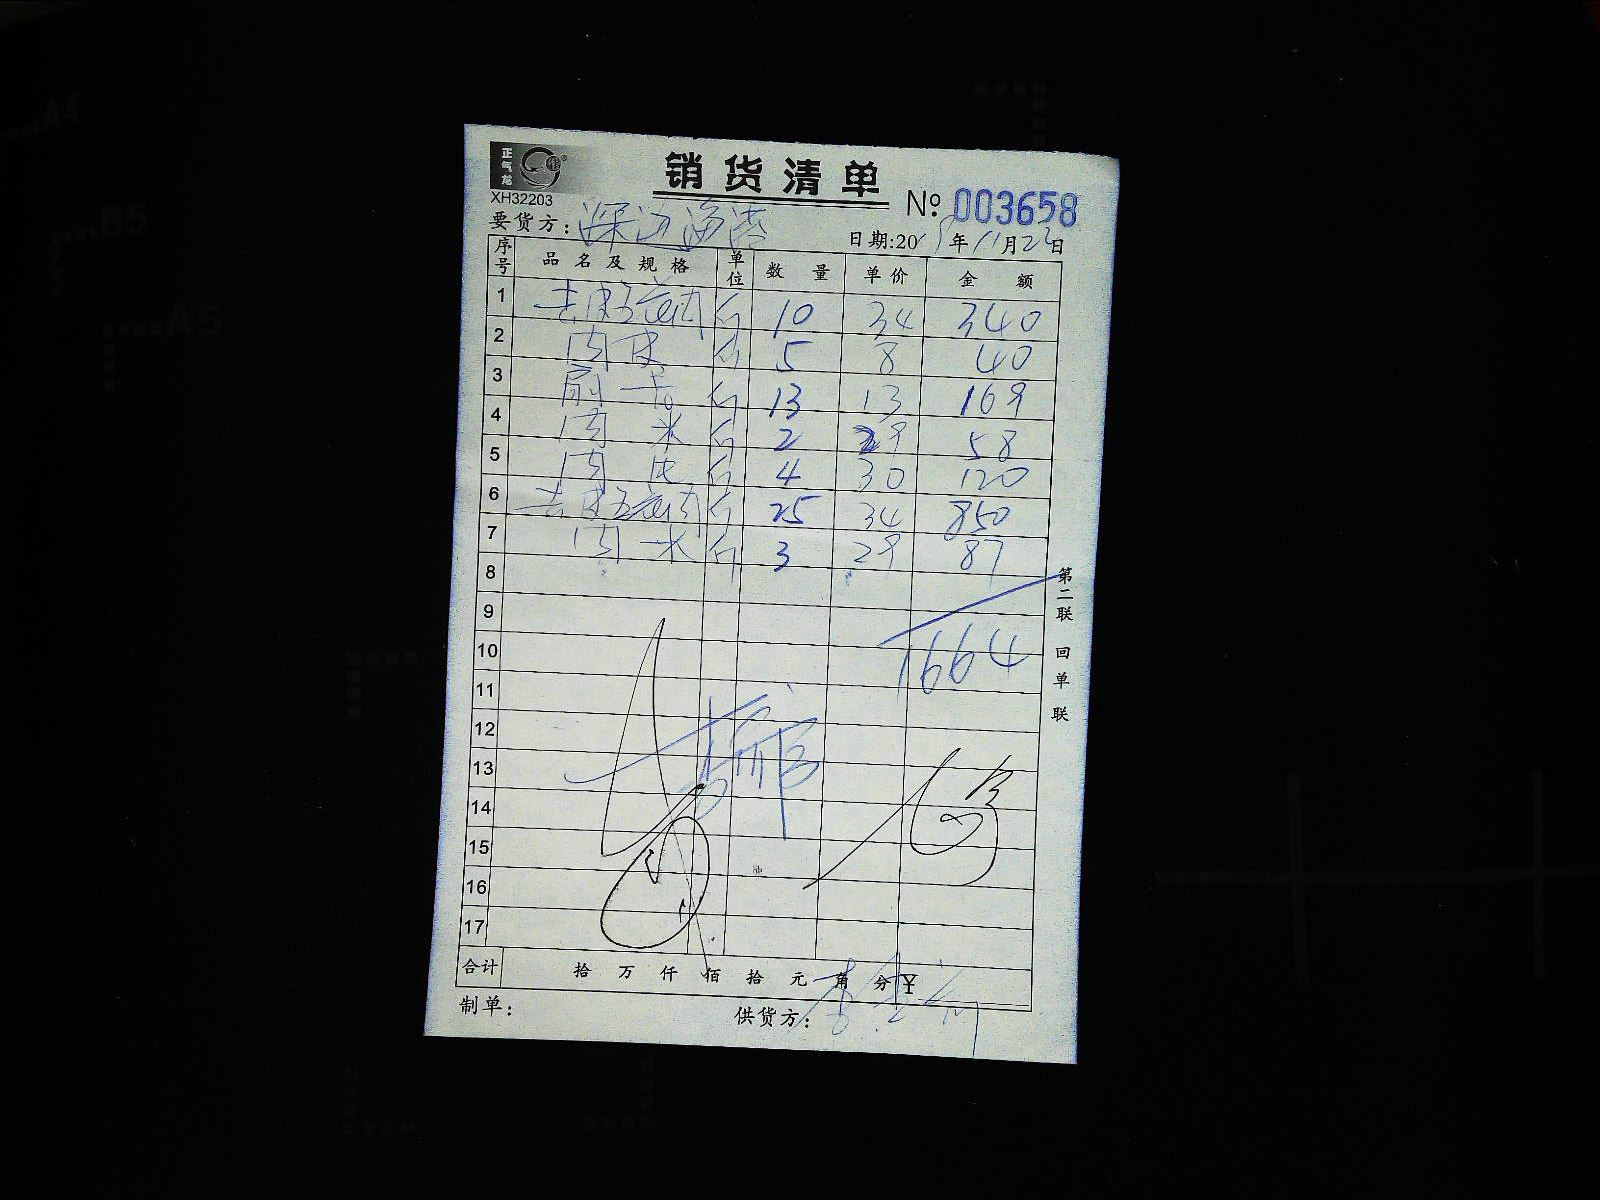 正气龙
销货清单
XH32203
No 003658
要货方：深江海港
日期:20 年11月22日
序号 品名及规格 单位 数量 单价 金额
1 去皮五花肉 斤 10 34 340
2 肉皮 斤 5 8 40
3 前 斤 13 13 169
4 肉米 斤 2 29 58
5 肉 斤 4 30 120
6 去皮五花肉 斤 25 34 850
7 肉米 斤 3 29 87
8
9
10 1664
11
12
13
14
15
16
17
合计 拾 万 仟 佰 拾 元 角 分 ¥
制单： 供货方：
第二联 回单联